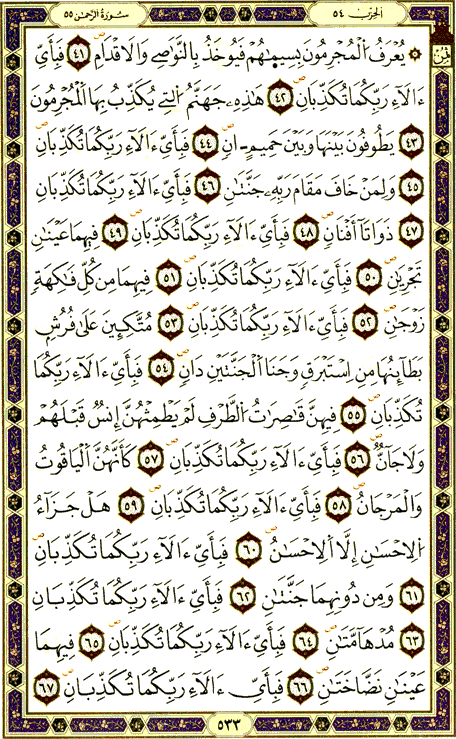 الحِزْب ٥٤ سُورَةُ الرَّحْمٰن ٥٥
ثُمُن
۞ يُعْرَفُ الْمُجْرِمُونَ بِسِيمٰهُمْ فَيُوخَذُ بِالنَّوَاصِے وَالَاقْدَامِ ٤١ فَبِأَيِّ
ءَالَآءِ رَبِّكُمَا تُكَذِّبَانِ ٤٢ هَٰذِهِۦ جَهَنَّمُ التِے يُكَذِّبُ بِهَا الْمُجْرِمُونَ
٤٣ يَطُوفُونَ بَيْنَهَا وَبَيْنَ حَمِيمٍ ـ انٍ ٤٤ فَبِأَيِّ ءَالَآءِ رَبِّكُمَا تُكَذِّبَانِ
٤٥ وَلِمَنْ خَافَ مَقَامَ رَبِّهِۦ جَنَّتَٰنِ ٤٦ فَبِأَيِّ ءَالَآءِ رَبِّكُمَا تُكَذِّبَانِ
٤٧ ذَوَاتَآ أَفْنَانٍ ٤٨ فَبِأَيِّ ءَالَآءِ رَبِّكُمَا تُكَذِّبَانِ ٤٩ فِيهِمَا عَيْنَٰنِ
تَجْرِيَٰنِ ٥٠ فَبِأَيِّ ءَالَآءِ رَبِّكُمَا تُكَذِّبَانِ ٥١ فِيهِمَا مِن كُلِّ فَٰكِهَةٍ
زَوْجَٰنِ ٥٢ فَبِأَيِّ ءَالَآءِ رَبِّكُمَا تُكَذِّبَانِ ٥٣ مُتَّكِـِٕينَ عَلَىٰ فُرُشٍ
بَطَآئِنُهَا مِنِ اسْتَبْرَقٍ وَجَنَا اَلْجَنَّتَيْنِ دَانٍ ٥٤ فَبِأَيِّ ءَالَآءِ رَبِّكُمَا
تُكَذِّبَانِ ٥٥ فِيهِنَّ قَٰصِرَٰتُ الطَّرْفِ لَمْ يَطْمِثْهُنَّ إِنسٌ قَبْلَهُمْ
وَلَا جَآنٌّ ٥٦ فَبِأَيِّ ءَالَآءِ رَبِّكُمَا تُكَذِّبَانِ ٥٧ كَأَنَّهُنَّ اَلْيَاقُوتُ
وَالْمَرْجَانُ ٥٨ فَبِأَيِّ ءَالَآءِ رَبِّكُمَا تُكَذِّبَانِ ٥٩ هَلْ جَزَآءُ
اُلِاحْسَٰنِ إِلَّا اَلِاحْسَٰنُ ٦٠ فَبِأَيِّ ءَالَآءِ رَبِّكُمَا تُكَذِّبَانِ
٦١ وَمِن دُونِهِمَا جَنَّتَٰنِ ٦٢ فَبِأَيِّ ءَالَآءِ رَبِّكُمَا تُكَذِّبَانِ
٦٣ مُدْهَآمَّتَٰنِ ٦٤ فَبِأَيِّ ءَالَآءِ رَبِّكُمَا تُكَذِّبَانِ ٦٥ فِيهِمَا
عَيْنَٰنِ نَضَّاخَتَٰنِ ٦٦ فَبِأَيِّ ءَالَآءِ رَبِّكُمَا تُكَذِّبَانِ ٦٧
٥٣٣